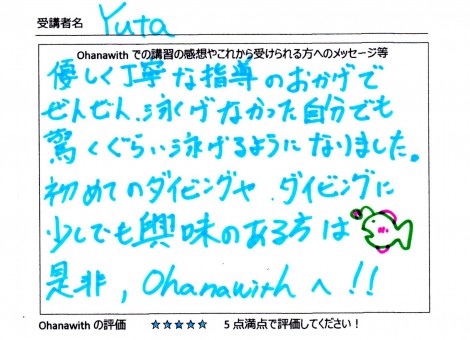 受講者名 Yuta
Ohanawith での講習の感想やこれから受けられる方へのメッセージ等
優しく丁寧な指導のおかげで
ぜんぜん、泳げなかった自分でも
驚くぐらい泳げるようになりました。
初めてのダイビングや ダイビングに
少しでも興味のある方は
是非, Ohanawith へ!!
Ohanawith の評価 ★★★★★ 5 点満点で評価してください！